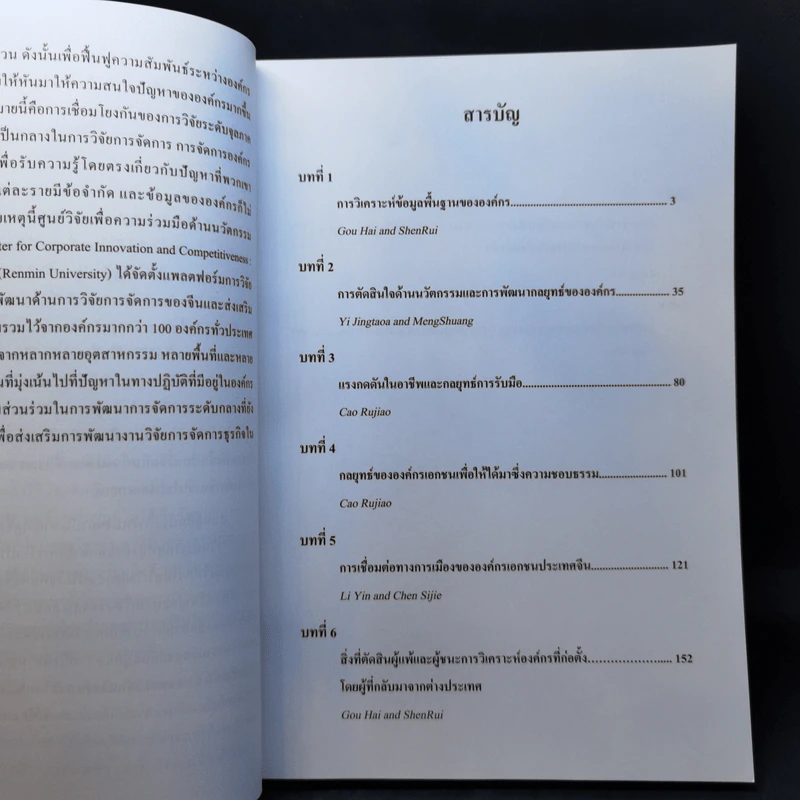 วน ดังนั้นเพื่อฟื้นฟูความสัมพันธ์ระหว่างองค์กร
ให้หันมาให้ความสนใจปัญหาขององค์กรมากขึ้น
มายนี้คือการเชื่อมโยงกันของการวิจัยระดับจุลภาค
เป็นกลางในการวิจัยการจัดการ การจัดการองค์กร
พื่อรับความรู้โดยตรงเกี่ยวกับปัญหาที่พวกเขา
แต่ละรายมีข้อจำกัด และข้อมูลขององค์กรก็ไม่
ยเหตุนี้ศูนย์วิจัยเพื่อความร่วมมือด้านนวัตกรรม
ter for Corporate Innovation and Competitiveness
(Renmin University) ได้จัดตั้งแพลตฟอร์มการวิจัย
พัฒนาด้านการวิจัยการจัดการของจีนและส่งเสริม
นรวมไว้จากองค์กรมากกว่า 100 องค์กรทั่วประเทศ
จากหลากหลายอุตสาหกรรม หลายพื้นที่และหลาย
นที่มุ่งเน้นไปที่ปัญหาในทางปฏิบัติที่มีอยู่ในองค์กร
มส่วนร่วมในการพัฒนาการจัดการระดับกลางที่ยัง
พื่อส่งเสริมการพัฒนางานวิจัยการจัดการธุรกิจใน
สารบัญ
บทที่ 1
การวิเคราะห์ข้อมูลพื้นฐานขององค์กร.................................................. 3
Gou Hai and ShenRui
บทที่ 2
การตัดสินใจด้านนวัตกรรมและการพัฒนากลยุทธ์ขององค์กร................. 35
Yi Jingtaoa and MengShuang
บทที่ 3
แรงกดดันในอาชีพและกลยุทธ์การรับมือ............................................... 80
Cao Rujiao
บทที่ 4
กลยุทธ์ขององค์กรเอกชนเพื่อให้ได้มาซึ่งความชอบธรรม..................... 101
Cao Rujiao
บทที่ 5
การเชื่อมต่อทางการเมืองขององค์กรเอกชนประเทศจีน........................ 121
Li Yin and Chen Sijie
บทที่ 6
สิ่งที่ตัดสินผู้แพ้และผู้ชนะการวิเคราะห์องค์กรที่ก่อตั้ง........................ 152
โดยผู้ที่กลับมาจากต่างประเทศ
Gou Hai and ShenRui